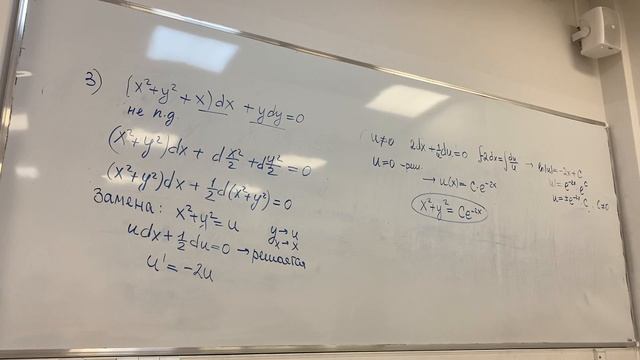 3) (x²+y²+x)dx + ydy = 0
не п.д.
(x²+y²)dx + d x²/2 + d y²/2 = 0
(x²+y²)dx + 1/2 d(x²+y²) = 0
Замена: x²+y² = u y→u
x→x
udx + 1/2 du = 0 → решается
u' = -2u
u≠0 2dx + 1/u du = 0 ∫-2dx = ∫du/u → ln|u| = -2x + C
u=0 - реш. |u| = e^-2x e^C
→ u(x) = C·e^-2x u = ±e^-2x C, C≠0
x²+y² = Ce^-2x